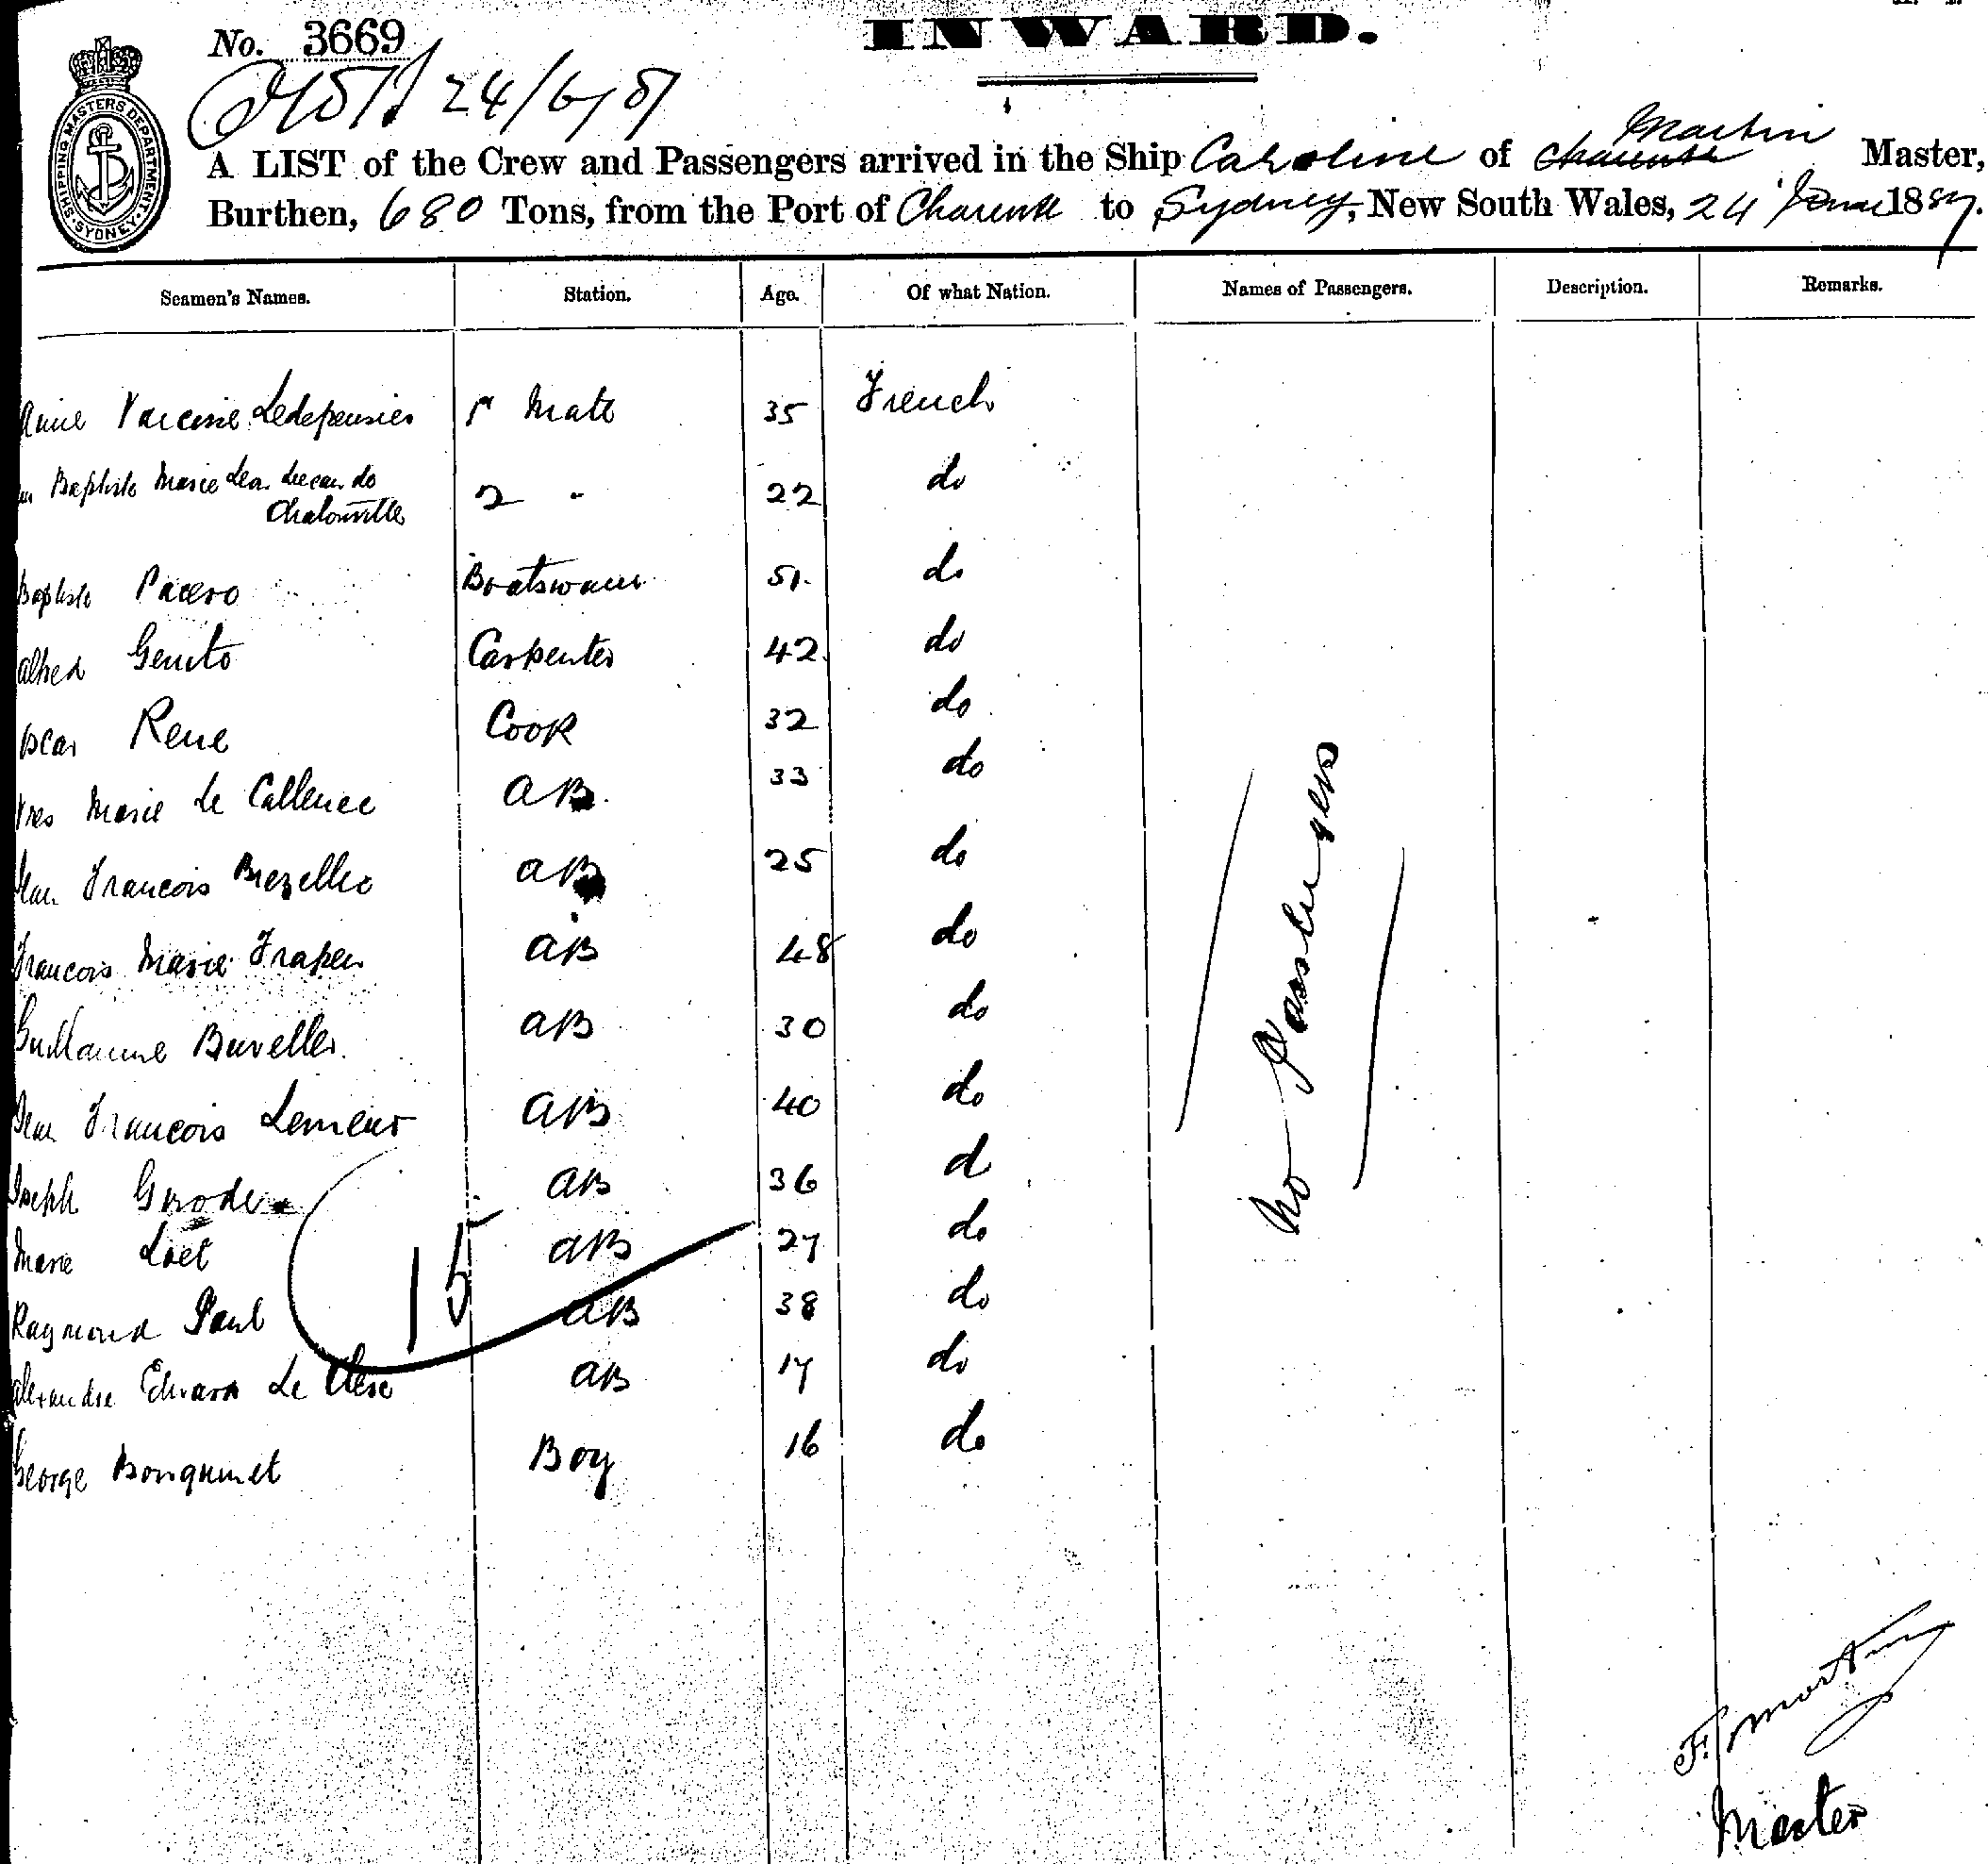 No. 3669
INWARD.
24/6/87
SHIPPING MASTERS DEPARTMENT SYDNEY
Martin
A LIST of the Crew and Passengers arrived in the Ship Caroline of Master,
Burthen, 680 Tons, from the Port of Charente to Sydney, New South Wales, 24 June 1887.
Seamen's Names. Station. Age. Of what Nation. Names of Passengers. Description. Remarks.
1st Mate 35 French
Baptiste Marie 2 " 22 do
Baptiste Boatswain 51 do
Alfred Carpenter 42 do
Oscar Rene Cook 32 do
Yves Marie Le AB 33 do
Jean Francois AB 25 do
Francois Marie AB 48 do
Guillaume AB 30 do
Jean Francois Lemeur AB 40 do
Joseph AB 36 d
Marie Loet AB 27 do
15
Raymond Paul AB 38 do
Alexandre Edward Le AB 17 do
George Boy 16 do
No Passengers
F. Martin
Master